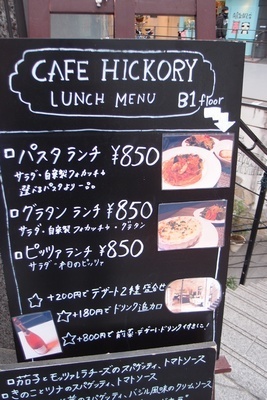 CAFE HICKORY
LUNCH MENU B1floor
パスタ ランチ ¥850
サラダ・自製フォカッチャ
選べるパスタより一品
グラタン ランチ ¥850
サラダ・自製フォカッチャ・グラタン
ピッツァ ランチ ¥850
サラダ・本日のピッツァ
☆ +200円で デザート2種盛合せ
☆ +180円で ドリンク追加
☆ +800円で 前菜・デザート・ドリンク付きます!
茄子とモッツァレラチーズのスパゲッティ、トマトソース
きのことツナのスパゲッティ、トマトソース
のスパゲッティ、バジル風味のクリームソース